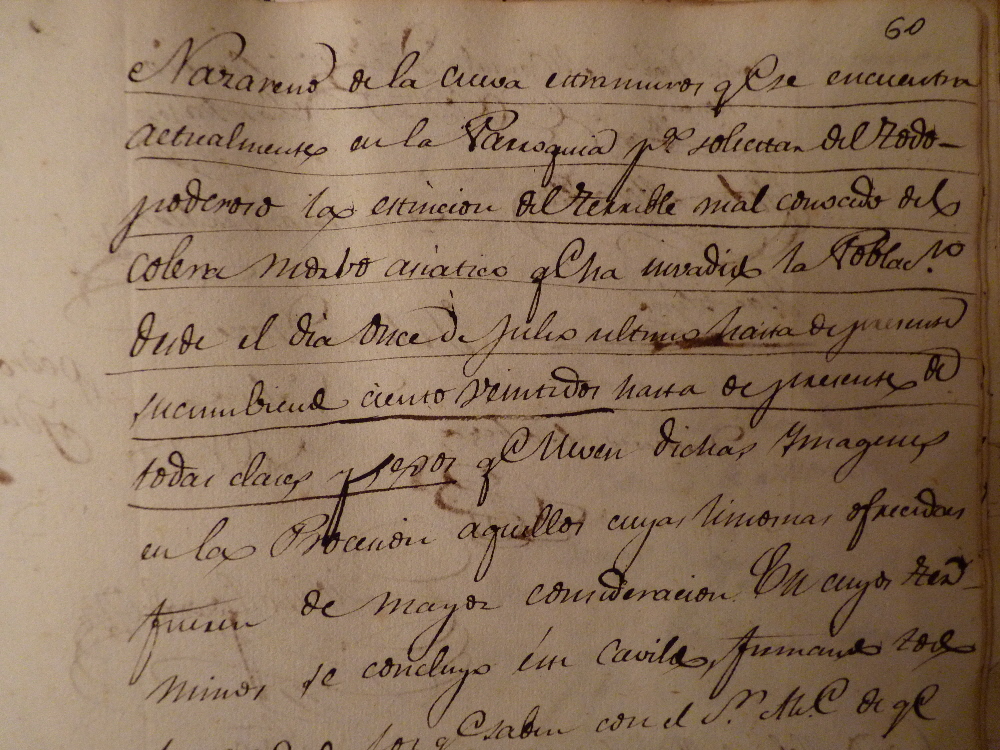 60
Nazareno de la Cueva extramuros qe se encuentra
actualmente en la Parroquia pa. solicitar del Todo-
poderoso la estincion del terrible mal conocido del
colera morbo asiatico qe ha invadido la Poblacn.
desde el dia Once de Julio ultimo hasta de presente
sucumbiendo ciento veintidos hasta de presente de
todas clases y sexos qe lleven dichas Imagenes
en la Procesion aquellos cuyas limosnas ofrecidas
fuesen de mayor consideracion. En cuyos ter-
minos se concluyo este Cavildo, firmando todos
los qe saben con el Sr. de qe